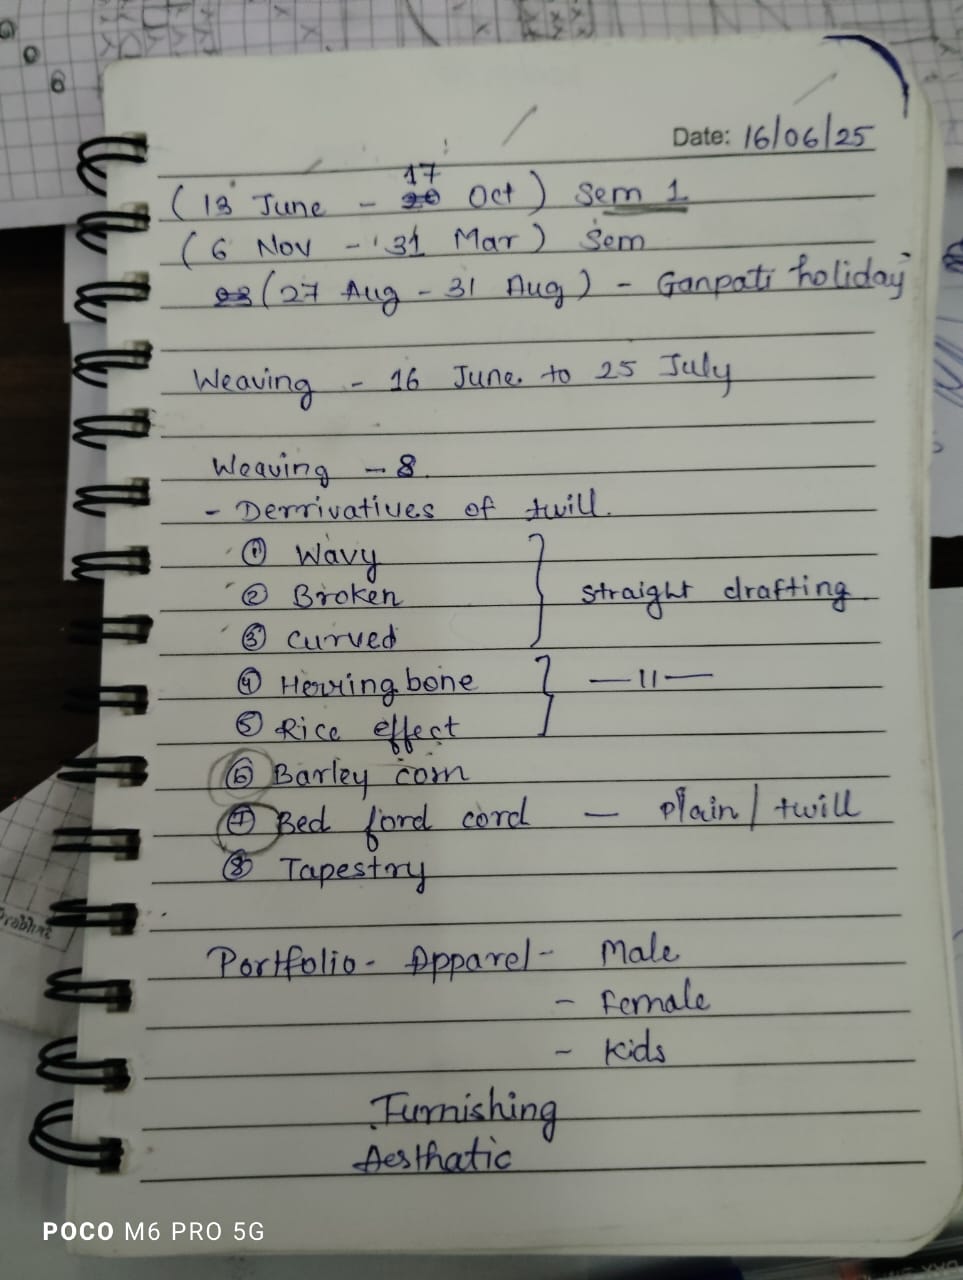 Date: 16/06/25
(13 June - 17 Oct) Sem 1
(6 Nov - 31 Mar) Sem
(27 Aug - 31 Aug) - Ganpati holiday
Weaving - 16 June to 25 July
Weaving - 8
- Derrivatives of twill.
① Wavy
② Broken
③ Curved
straight drafting
④ Herringbone
⑤ Rice effect
—11—
⑥ Barley corn
⑦ Bed ford cord - plain / twill
⑧ Tapestry
Portfolio - Apparel - Male
- Female
- Kids
Furnishing
Aesthatic
POCO M6 PRO 5G